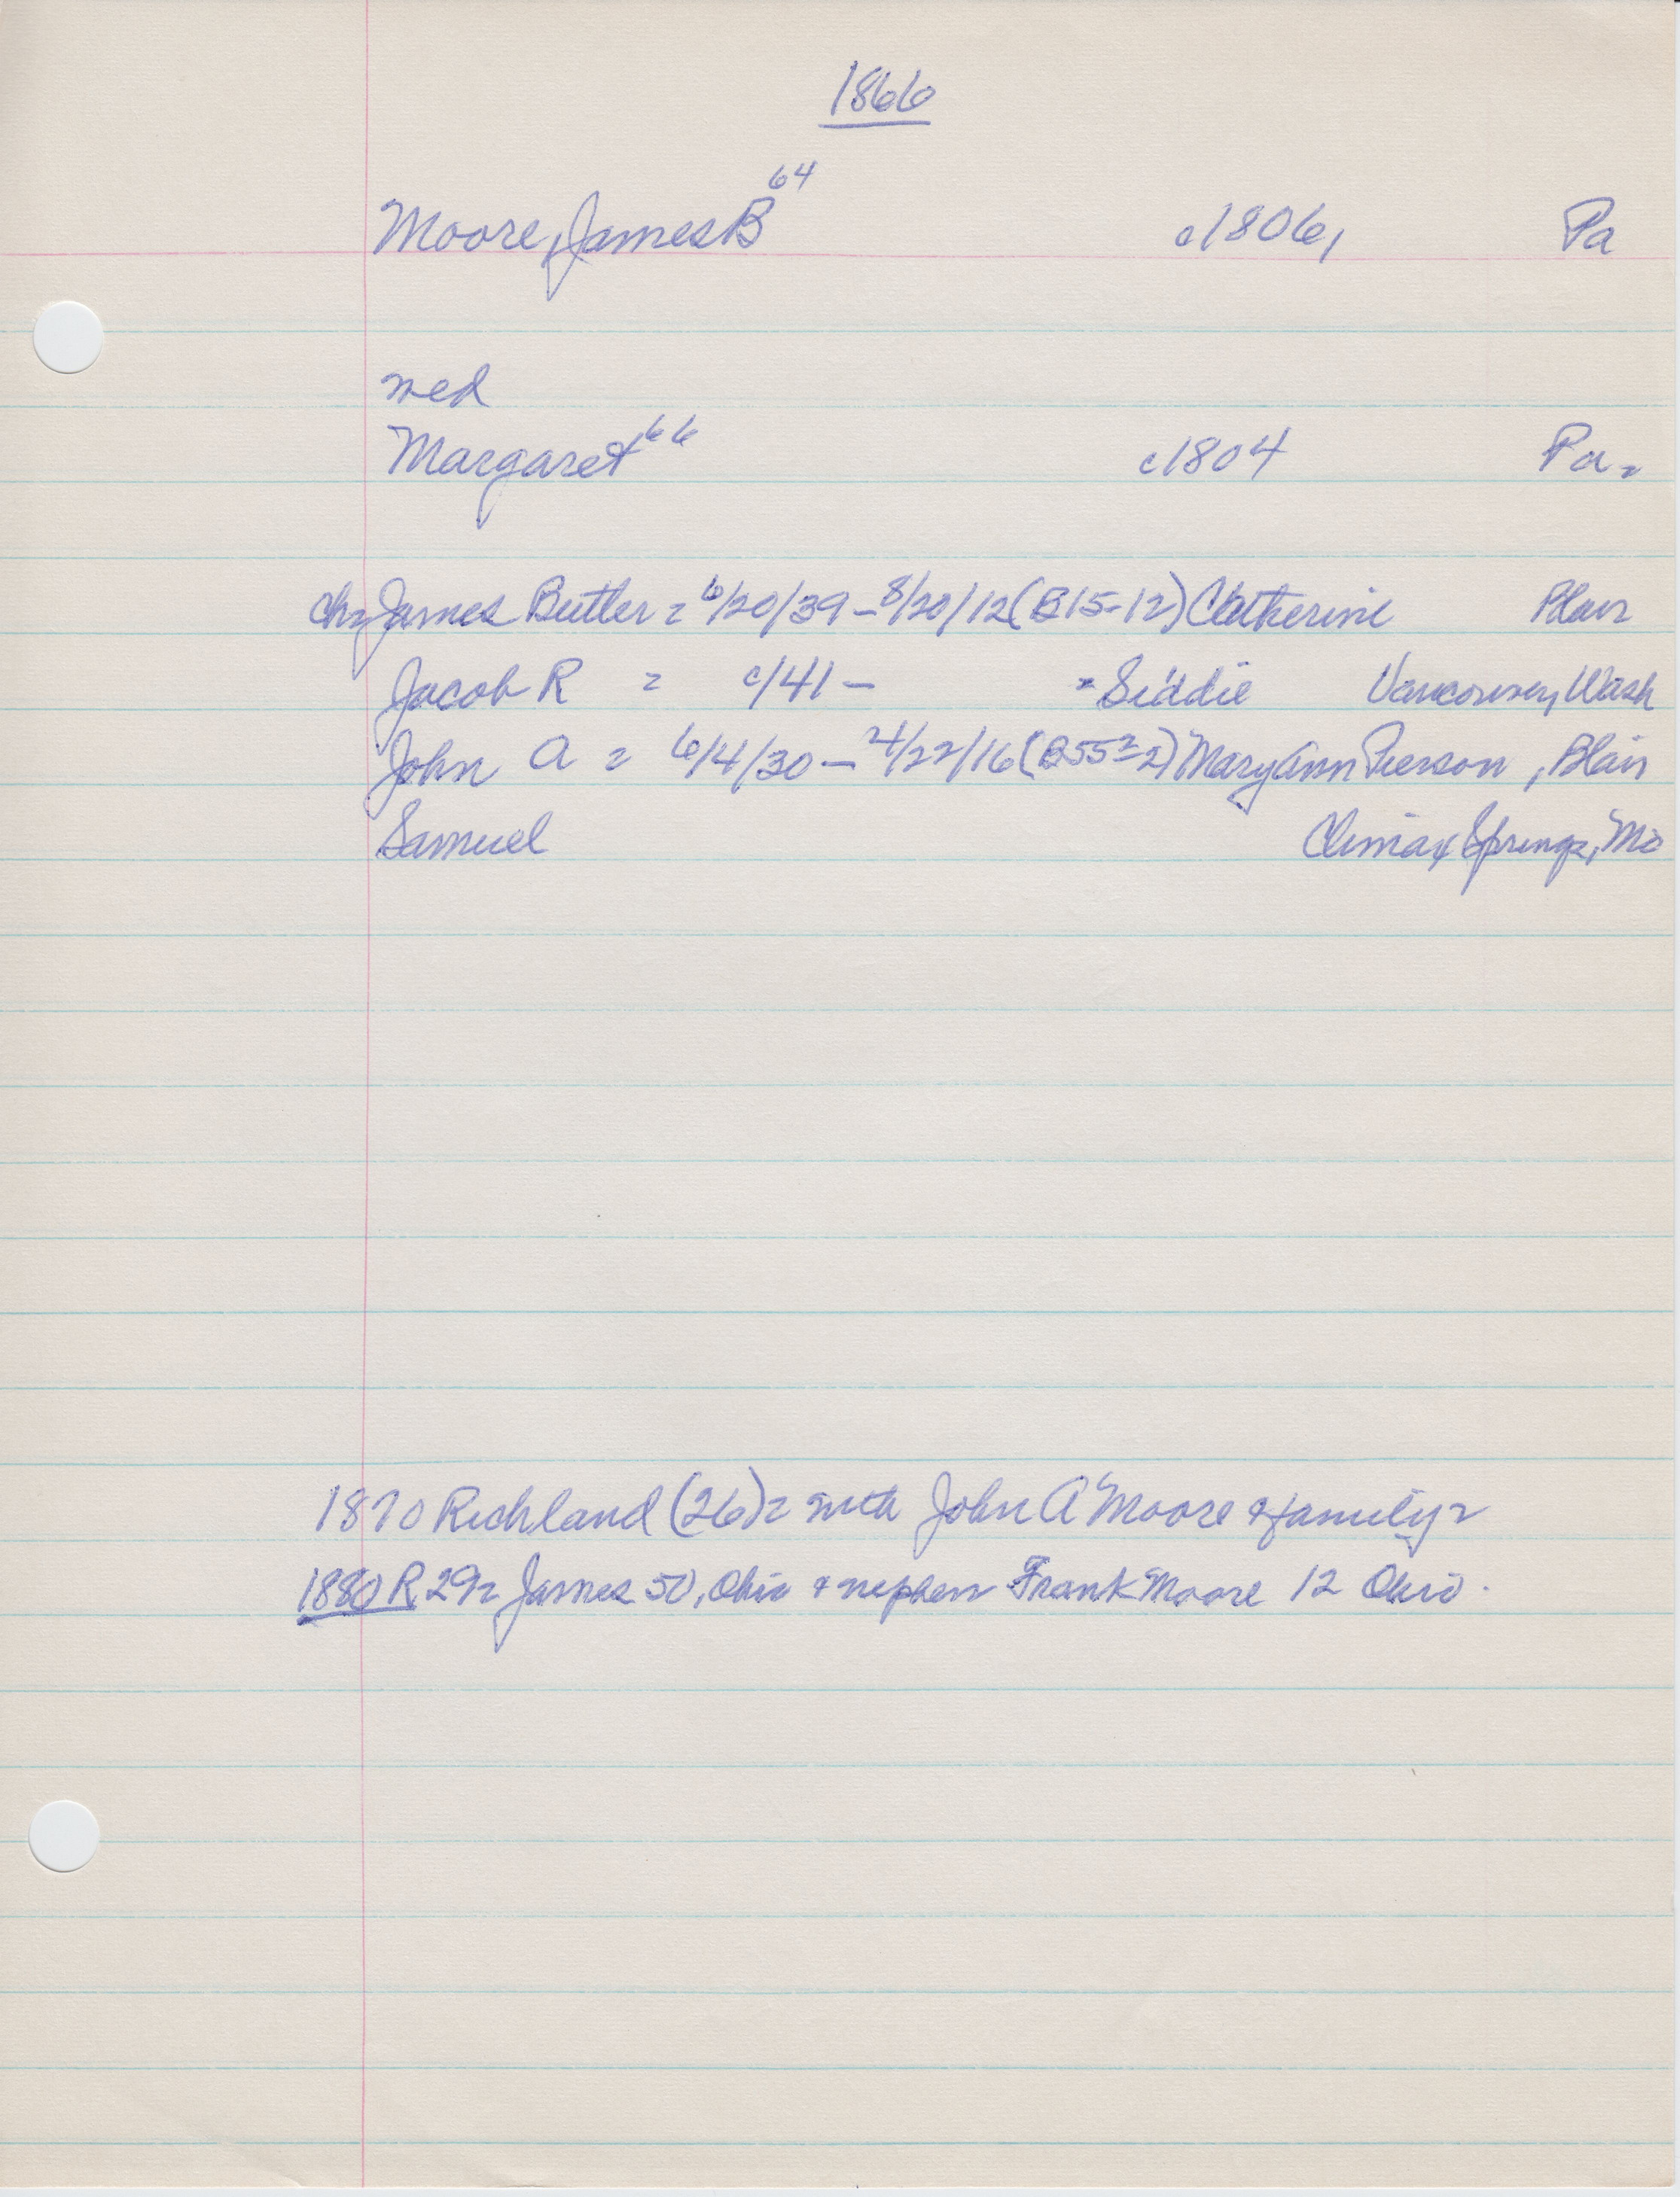 1866
Moore, James B 64 c1806, Pa
med
Margaret 66 c1804 Pa-
ch= James Butler = 6/20/39 - 8/20/12 (B15-12) Catherine Blair
Jacob R = c/41 - - Siddie Vancouver, Wash
John A = 6/4/30 - 4/22/16 (B55-2) Mary Ann Pierson, Blair
Samuel Climax Springs, Mo
1870 Richland (26) = with John A Moore & family -
1880 R 29 = James 50, Ohio & nephew Frank Moore 12 Ohio.